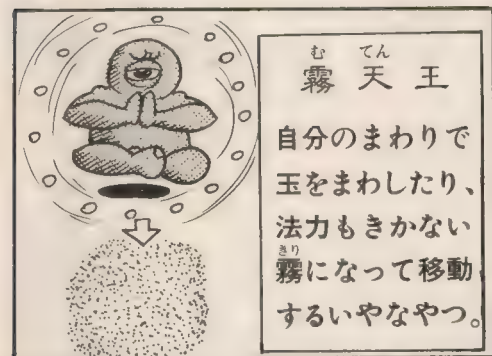 む てん
霧 天 王
自分のまわりで
玉をまわしたり、
法力もきかない
きり
霧になって移動
するいやなやつ。